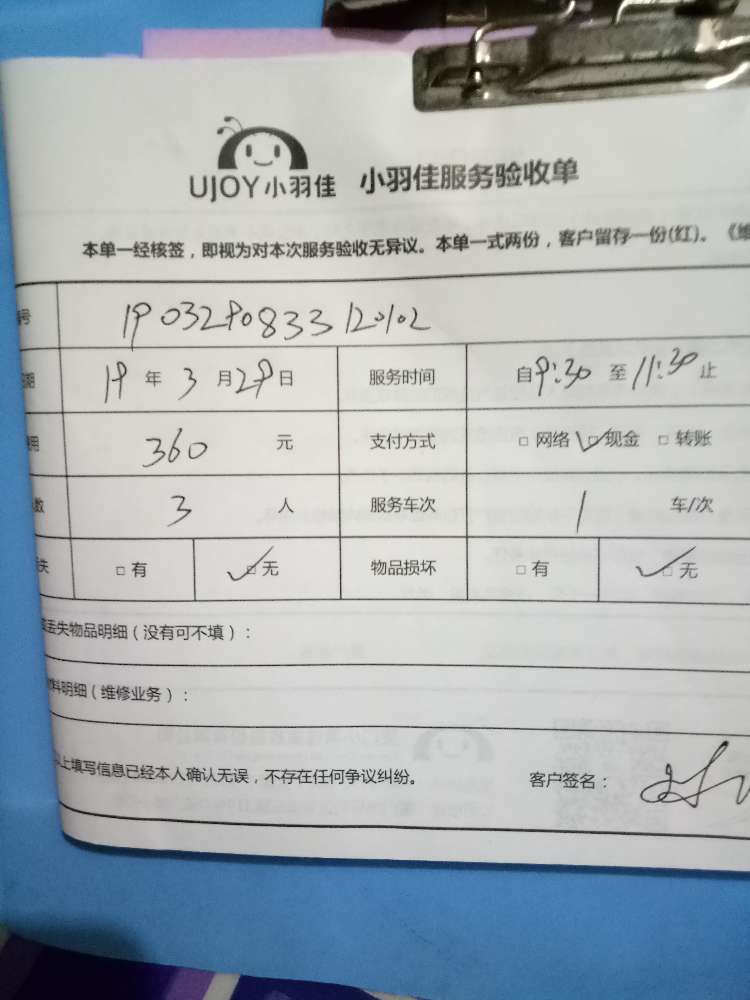 UJOY小羽佳 小羽佳服务验收单
本单一经核签，即视为对本次服务验收无异议。本单一式两份，客户留存一份(红)。《维
号 1903290833120102
期 19 年 3 月 29 日 服务时间 自 9:30 至 11:30 止
用 360 元 支付方式 □ 网络 ☑ 现金 □ 转账
数 3 人 服务车次 1 车/次
失 □ 有 ☑ 无 物品损坏 □ 有 ☑ 无
丢失物品明细（没有可不填）：
料明细（维修业务）：
以上填写信息已经本人确认无误，不存在任何争议纠纷。 客户签名：